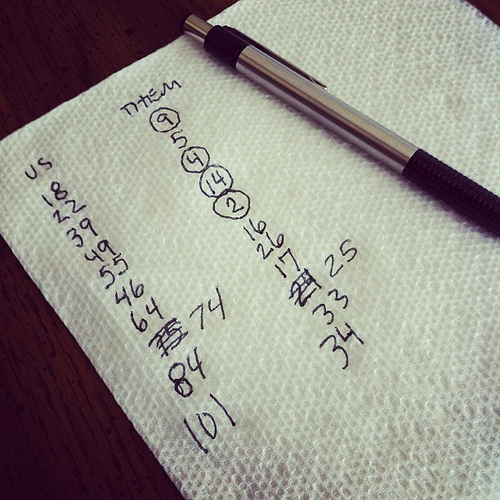 US
18
22
39
49
55
46
64
74
84
101
THEM
9
5
4
14
2
16
26
17
25
33
34